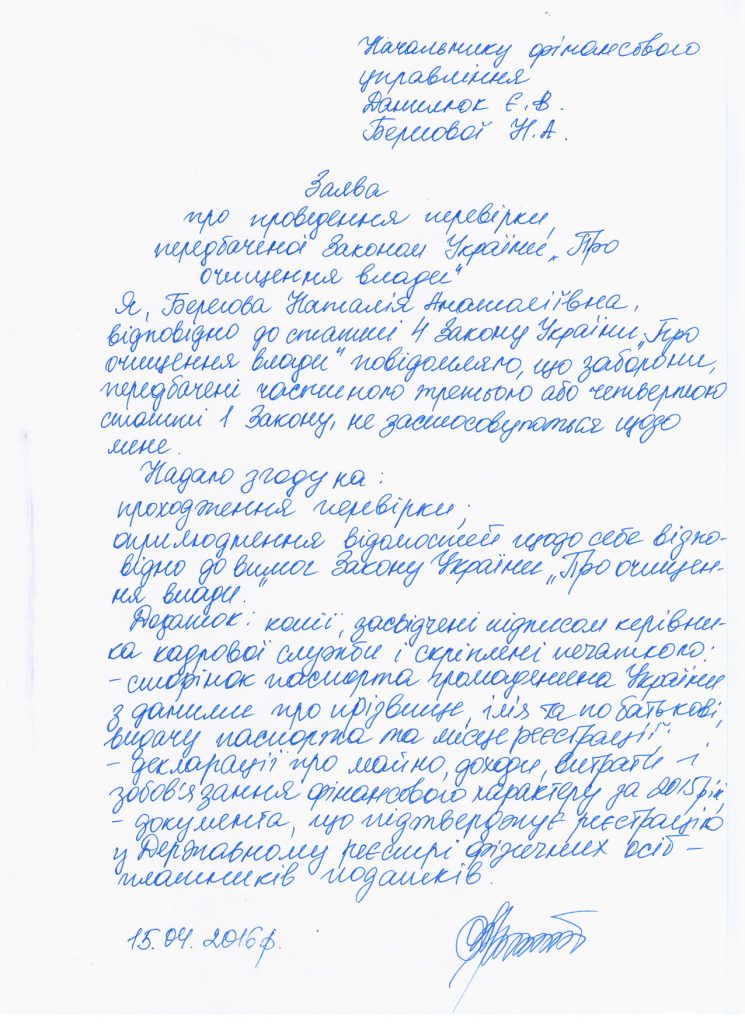 Начальнику фінансового
управління
Данилюк Є.В.
Берегової Н.А.
Заява
про проведення перевірки,
передбаченої Законом України „Про
очищення влади"
Я, Берегова Наталія Анатоліївна,
відповідно до статті 4 Закону України „Про
очищення влади" повідомляю, що заборони,
передбачені частиною третьою або четвертою
статті 1 Закону, не застосовуються щодо
мене.
Надаю згоду на:
проходження перевірки;
оприлюднення відомостей щодо себе відпо-
відно до вимог Закону України „Про очищен-
ня влади."
Додаток: копії, засвідчені підписом керівни-
ка кадрової служби і скріплені печаткою:
- сторінок паспорта громадянина України
з даними про прізвище, ім'я та по батькові,
видачу паспорта та місце реєстрації;
- декларації про майно, доходи, витрати і
зобов'язання фінансового характеру за 2015 рік;
- документа, що підтверджує реєстрацію
у Державному реєстрі фізичних осіб -
платників податків.
15.04.2016р.